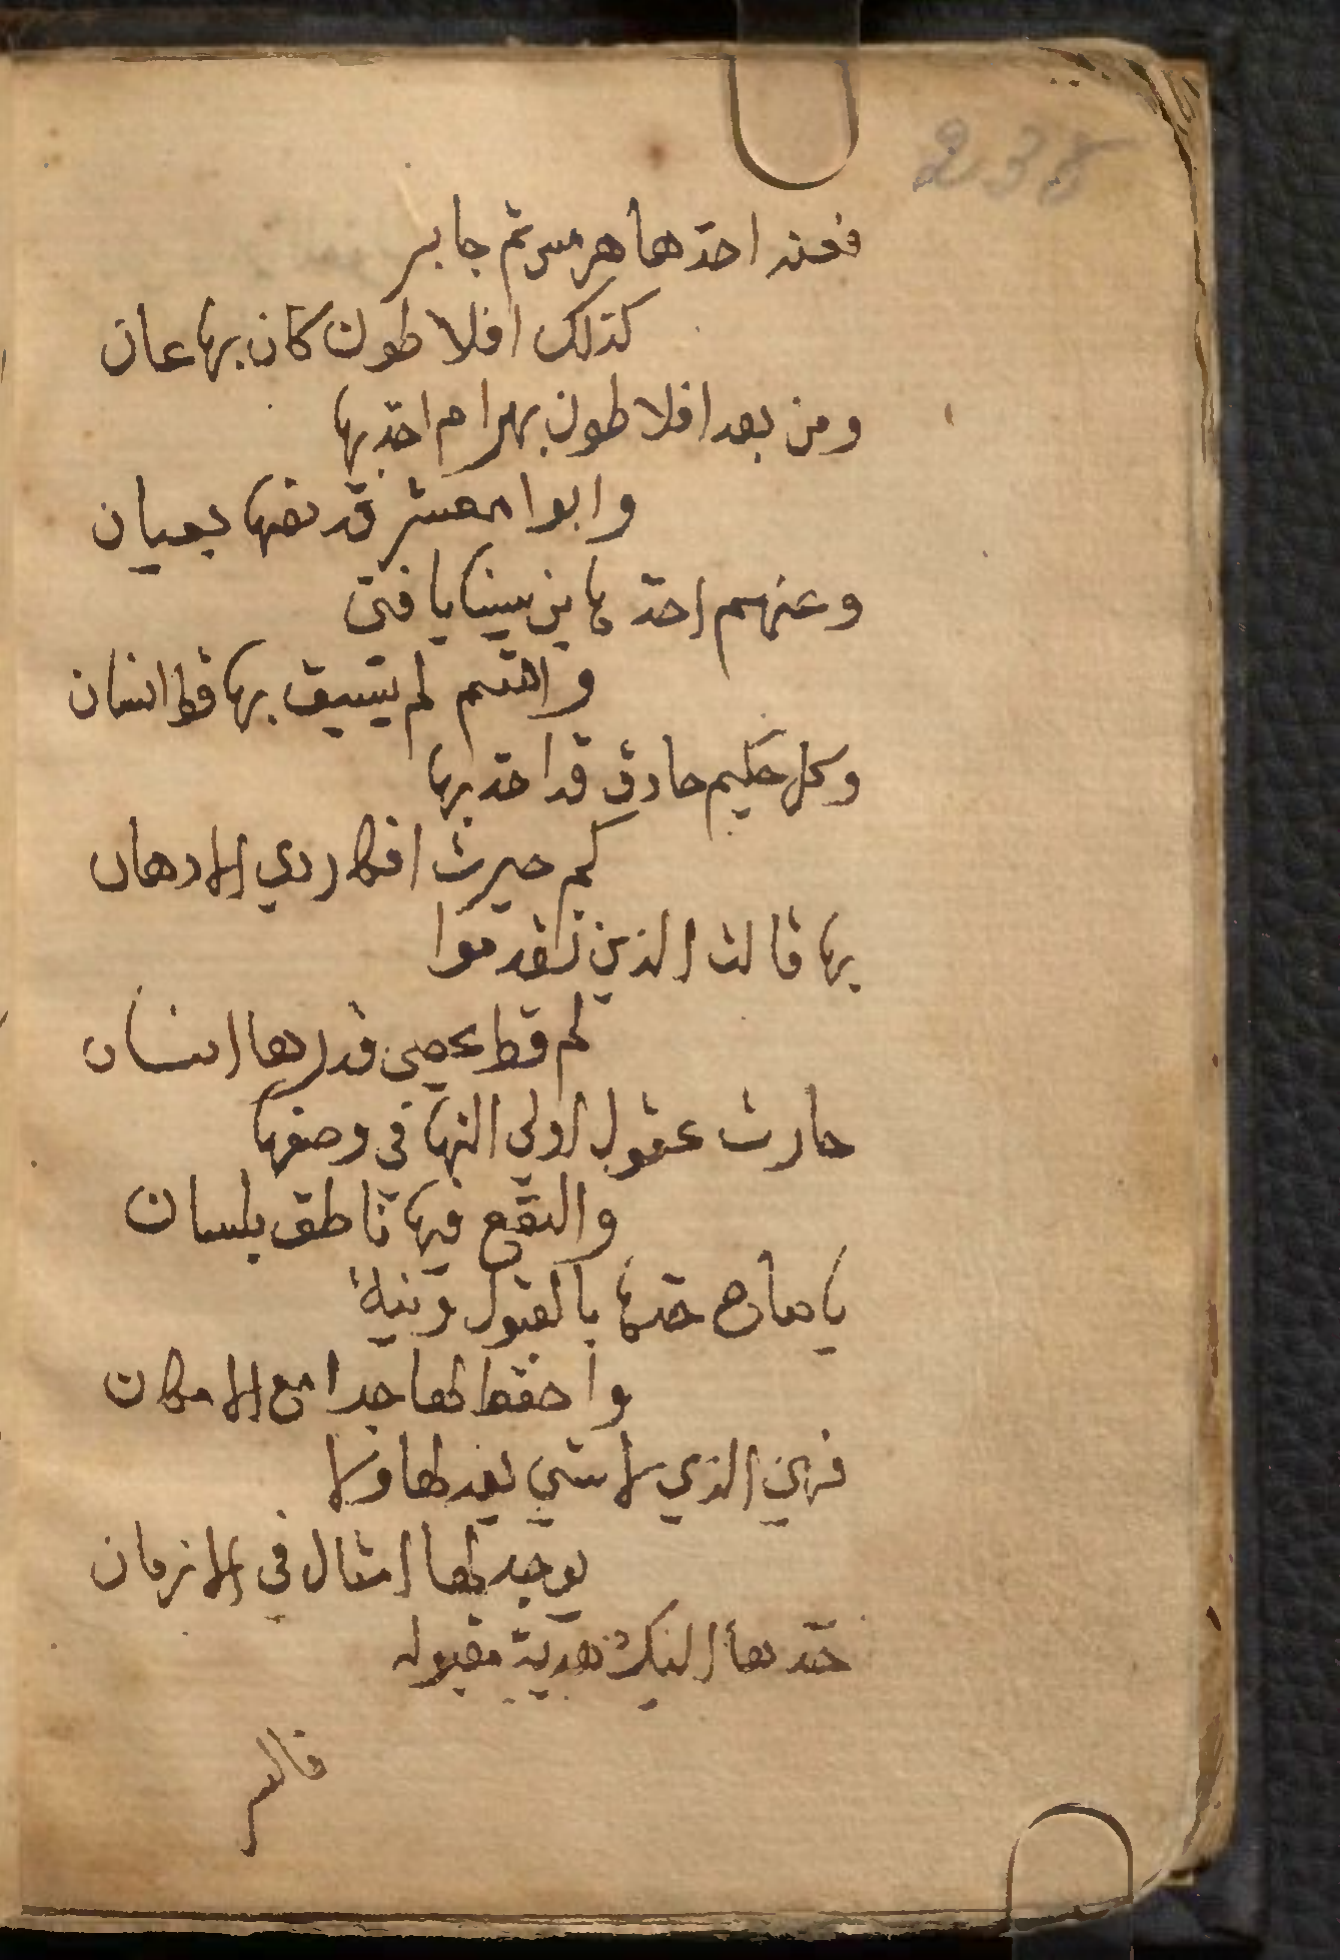 238
فعنه اخدها هرمس ثم جابر
كذلك افلاطون كان بها عان
ومن بعد افلاطون بهرام اخد بها
وابوا معشر قد نصها بعيان
وعنهم اخدها بن سينا يا فتى
واقسم لم يسبق بها قط انسان
وكل حكيم حادق قد اخد بها
كم حيرت افكار دي الادهان
بها قالت الذين تقدموا
لم قط يحصي قدرها انسان
حارت عقول اولي النها في وصفها
والنقع فيها ناطق بلسان
يا صاح خدها بالقبول ونية
واحفظ لها جدا مع الامكان
فهي الذي لا شي يعدلها ولا
يوجد لها امثال في الازمان
خدها اليك هدية مقبوله
فالسر